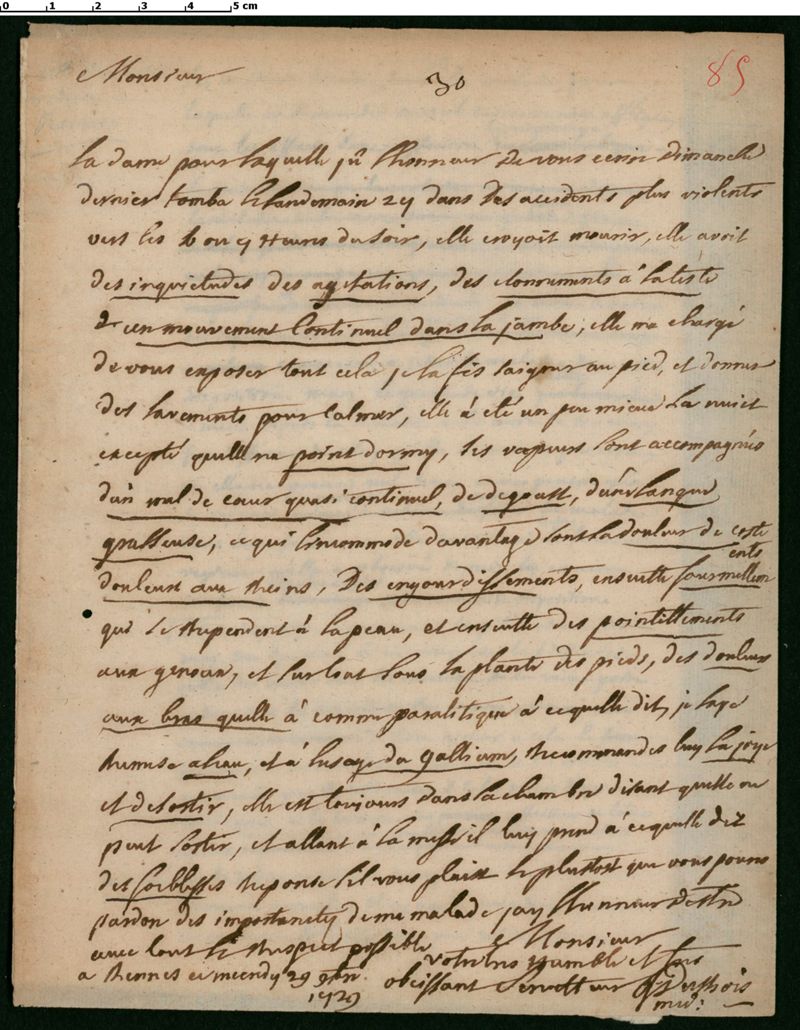 0 1 2 3 4 5 cm
Monsieur
30
85
la dame pour laquelle j'ü l'honneur de vous ecrire dimanche
dernier tomba le landemain 24 dans des accidents plus violents
vers les 8 ou 9 heures du soir, elle croyoit mourir, elle avoit
des inquietudes des agitations, des etonnements à la teste
et un mouvement continuel dans la jambe, elle ma chargé
de vous exposer tout cela je la fis saigner au pied, et donner
des lavements pour calmer, elle à eté un peu mieux la nuict
excepté quelle na point dormy, les vapeurs sont accompagnées
d'un mal de coeur quasi continuel, de degoust, d'une langue
grasseuse, ce qui l'incommode davantage sont la douleur de coste
douleurs aux reins, des engourdissements, ensuitte fourmillem
ents
qui se rependent à la peau, et ensuitte des pointillements
aux genoux, et surtout sous la plante des pieds, des douleurs
aux bras quelle à comme paralitique à ce quelle dit, je lage
remise à leau, et à lusage du gallium, recommandes luy la joye
et de sortir, elle est tousjours dans la chambre disant quelle ne
peut sortir, et allant à la messe il luy prend à ce quelle dit
des foiblesses reponse sil vous plaist le plustost que vous pourres
pardon des importunitez de me malade jay l'hunneur destre
avec tout le respect possible Monsieur
votre tres humble et tres
a Rennes ce mecredy 29 9bre
obeissant serviteur
1729
med: